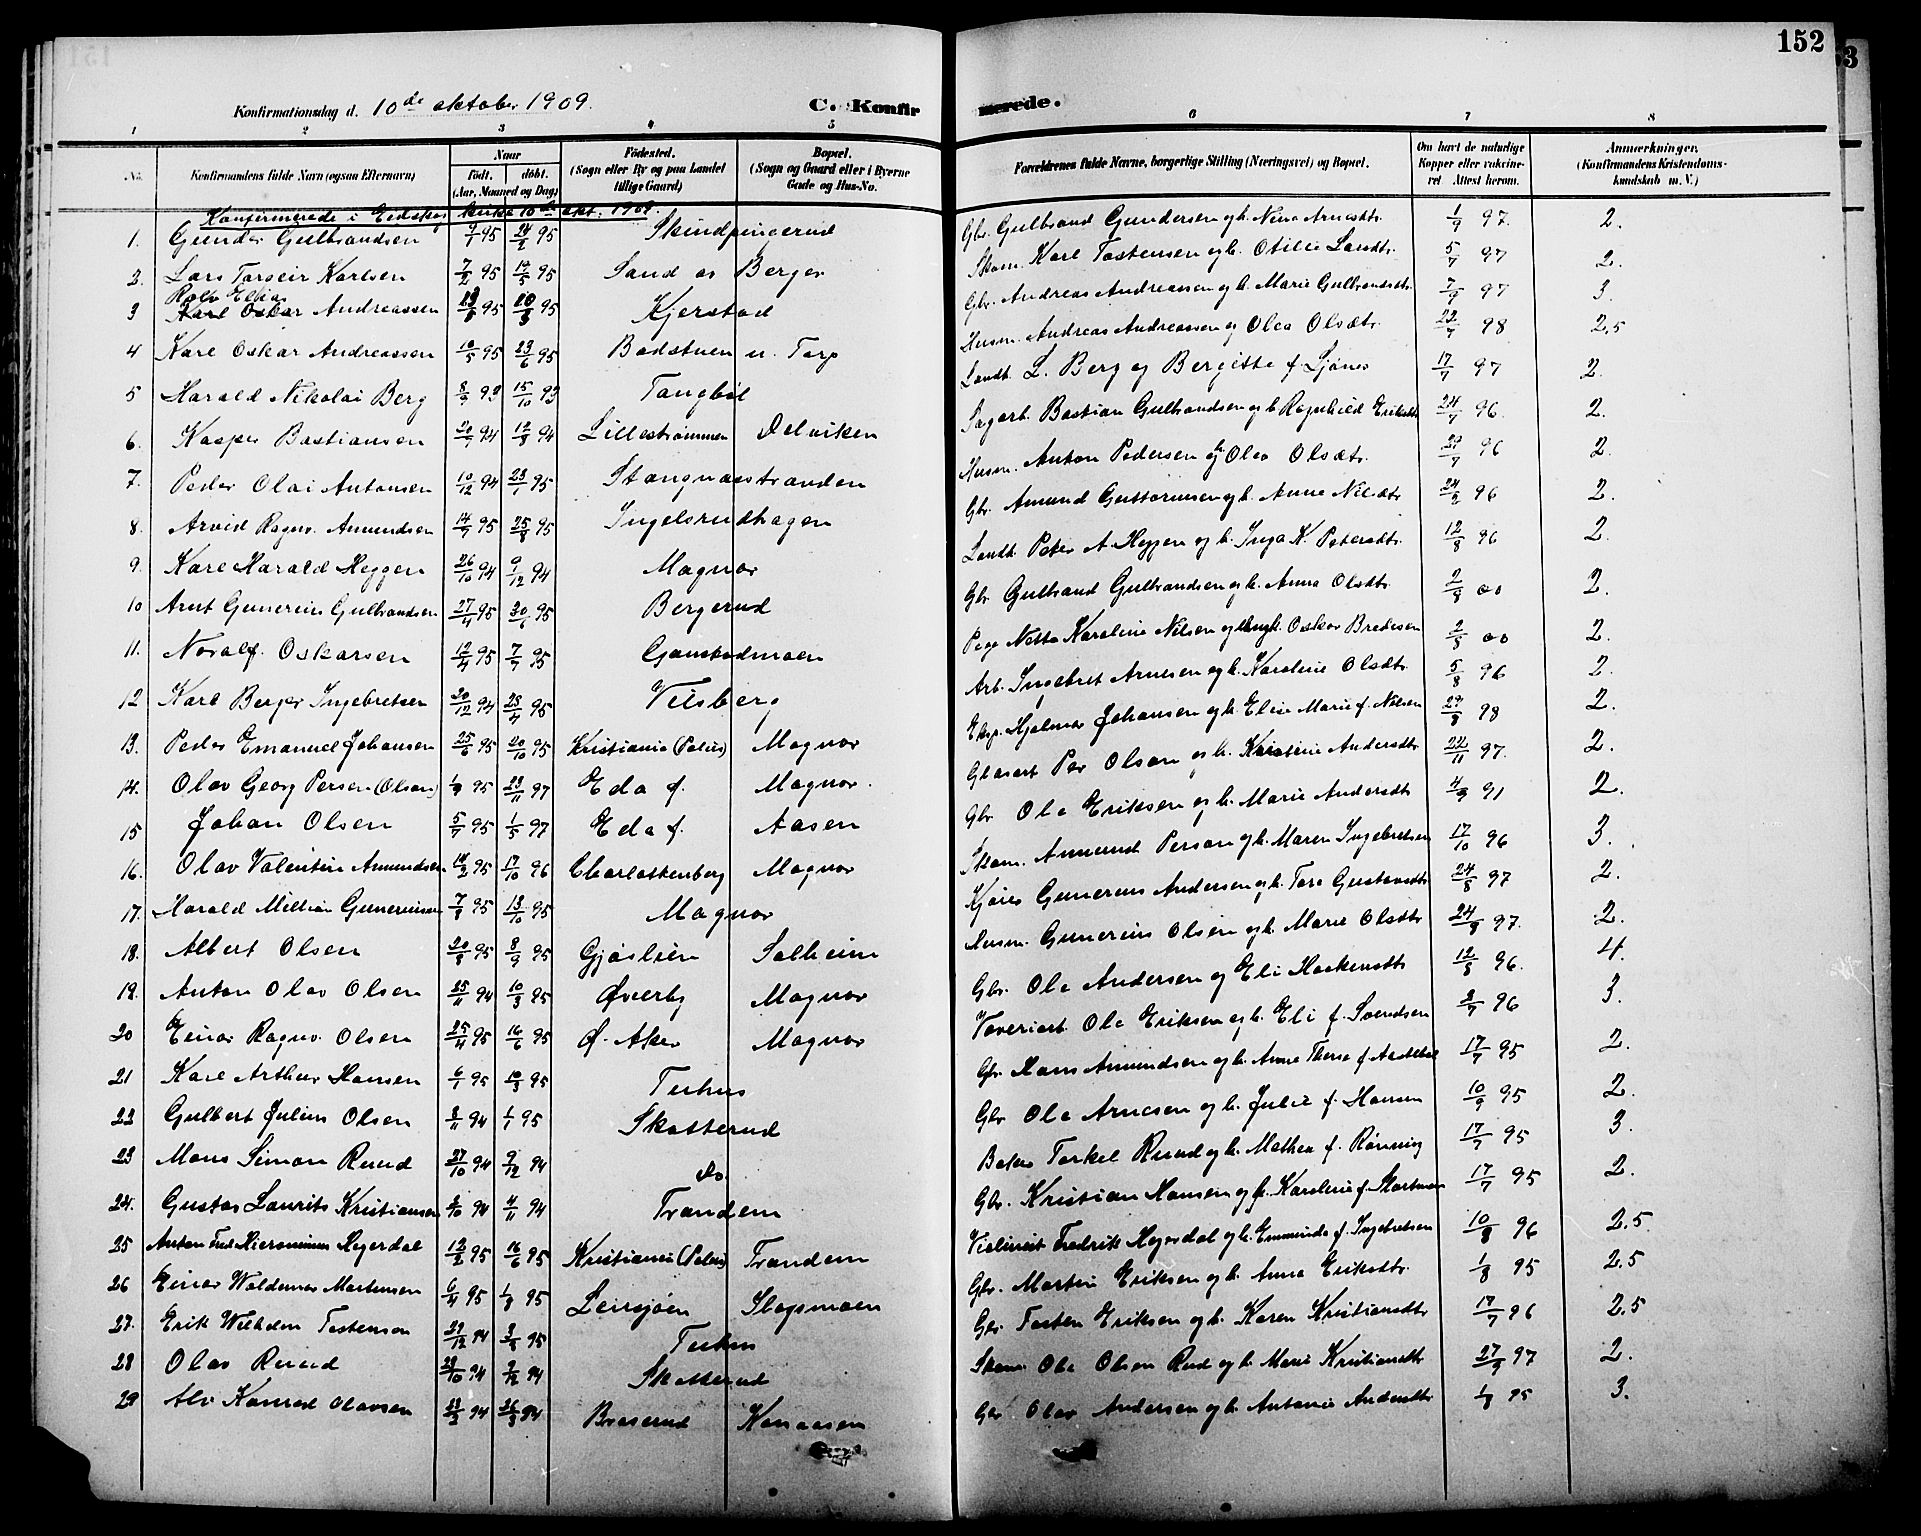 152
Konfirmationsdag d. 10de oktober 1909.
C. Konfirmerede.
1 2 3 4 5 6 7 8
No.
Konfirmandens fulde Navn (ogsaa Efternavn)
Naar
Født. døbt.
(Aar, Maaned og Dag)
Fødested.
(Sogn eller By og paa Landet
tillige Gaard)
Bopæl.
(Sogn og Gaard eller i Byerne
Gade og Hus-No.
Forældrenes fulde Navne, borgerlige Stilling (Næringsvei) og Bopæl.
Om havt de naturlige
Kopper eller vaksine-
ret. Attest herom.
Anmerkninger.
(Konfirmandens Kristendoms-
kundskab m. V.)
Konfirmerede i Eidskog kirke 10de okt. 1909.
1. Gunder Gulbrandsen 95 95 Gbr. Gulbrand Gundersen og h. 1/9 97. 2.
2. Lars Karlsen 7/2 95 95 Sand os Berger Skom. Karl Tostensen og h. Otilie Larsdtr. 5/7 97 2.
Rolv Elias
3 Karl Oskar Andreassen 95 95 Kjerstad Gbr. Andreas Andreassen og h. Marie Gulbrandsdtr. 7/9 97 3.
4 Karl Oskar Andreassen 10/5 95 23/6 95 Badstuen u. Torp Husm. Andreas Andreassen og Olea Olsdtr. 98 2.5
5 Harald Nikolai Berg 93 15/10 93 Tangbøl Landh. L. Berg og Bergitte f. 17/7 97 2.
6. Kasper Bastiansen 94 12/8 94 Lillestrømmen Delviken Sagarb. Bastian Gulbrandsen og h. Ragnhild Eriksdtr. 24/7 96. 2.
7. Peder Olai Antonsen 10/12 94 23/1 95 Stangnæsstranden Husm. Anton Pedersen og h. Olea Olsdtr. 96 2.
8. Arvid Ragnv. Amundsen 14/7 95 25/8 95 Ingelsrudhagen Gbr. Amund Guttormsen og h. Anne Nilsdtr. 96 2.
9. Karl Harald Heggen 26/10 94 9/12 94 Magnor Landh. Peter A. Heggen og h. Inga K. Petersdtr. 12/8 96 2.
10 Arnt Gunerius Gulbrandsen 27/4 95 30/6 95 Bergerud Gbr. Gulbrand Gulbrandsen og h. Anna Olsdtr. 2/8 00 2.
11. Noralf. Oskarsen 12/4 95 7/7 95 Gaustadmoen Pige Netta Karoline Nilsen og ungk. Oskar Bredesen 2/8 00 2.
12 Karl Berger Ingebretsen 20/12 94 25/4 95 Vilsberg Arb. Ingebret Arnesen og h. Karoline Olsdtr. 5/8 96 2.
13. Peder Emanuel Johansen 25/6 95 20/10 95 Kristiania Magnor Eksp. Hjalmar Johansen og h. Elise Marie f. Nilsen 98 2.
14. Olav Georg Persen (Olsen) 95 23/11 97 Eda f. Magnor. Glasarb. Per Olsen og h. Kristine Andersdtr. 22/11 97. 2.
15 Johan Olsen 5/7 95 1/5 97 Eda f. Aasen Gbr. Ole Eriksen og h. Marie Andersdtr. 4/9 91 2.
16. Olav Valentin Amundsen 14/2 95 17/10 96 Charlottenberg Magnor Skom. Amund Person og h. Maren Ingebretsen 17/10 96 3.
17. Harald Millian Gunerussen 7/8 95 13/10 95 Magnor Kjører Gunerius Andersen og h. Tora Gustavsdtr. 24/8 97 2.
18. Albert Olsen 20/8 95 8/9 95 Gjøslien Solheim Husm. Gunerius Olsen og h. Marie Olsdtr. 24/8 97. 2.
19. Anton Olav Olsen 25/11 94 10/3 95 Øverby Magnor Gbr. Ole Andersen og Eli Haakensdtr. 12/8 96. 4.
20 Einar Ragnv. Olsen 25/4 95 16/6 95 Ø. Aker Magnor Væveriarb. Ole Eriksen og h. Eli f. Svendsen 96 3.
21 Karl Arthur Hansen 6/1 95 10/3 95 Gbr. Hans Amundsen og h. Anne Therese f. 17/7 95 2.
22 Gulbert Julius Olsen 8/11 94 1/1 95 Skotterud Gbr. Ole Arnesen og h. Julie f. Hansen 10/9 95 2.
23 Mons Simon Ruud 27/10 94 9/12 94 do. Baker Torkel Ruud og h. Mathea f. Rønning 17/7 95 3.
24. Gustav Laurits Kristiansen 94 4/11 94 Trandem Gbr. Kristian Hansen og h. Karoline f. 17/7 95 2.
25 Anton Fred. Hieronimus Hejerdal 12/2 95 16/6 95 Kristiania Trandem Violinist Fredrik Hejerdal og h. Emmunda f. Ingebretsen 10/8 96 2.5
26 Einar Woldemar Martinsen 6/4 95 95 Lensjøen Slagsmoen Gbr. Martin Eriksen og h. Anna Eriksdtr. 1/8 95 2.5
27. Erik Wilhelm Tostensen 94 95 Gbr. Tosten Eriksen og h. Karen Kristiansdtr. 17/7 96 2.5
28 Olav Ruud 94 9/12 94 Skotterud Skom. Ole Olsen Rud og h. Marie Kristiansdtr. 97 2.
29 Alv Konrad Olavsen 94 94 Braserud Kanaasen Gbr. Olav Andersen og h. Antonie Andersdtr. 95 3.